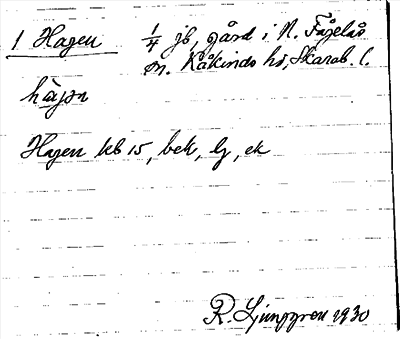 1 Hagen
1/4 jb, gård i N. Fågelås
sn. Kåkinds hd, Skarab. l.
hàjən
Hagen kb 15, bek, lg, ek
R. Ljunggren 1930